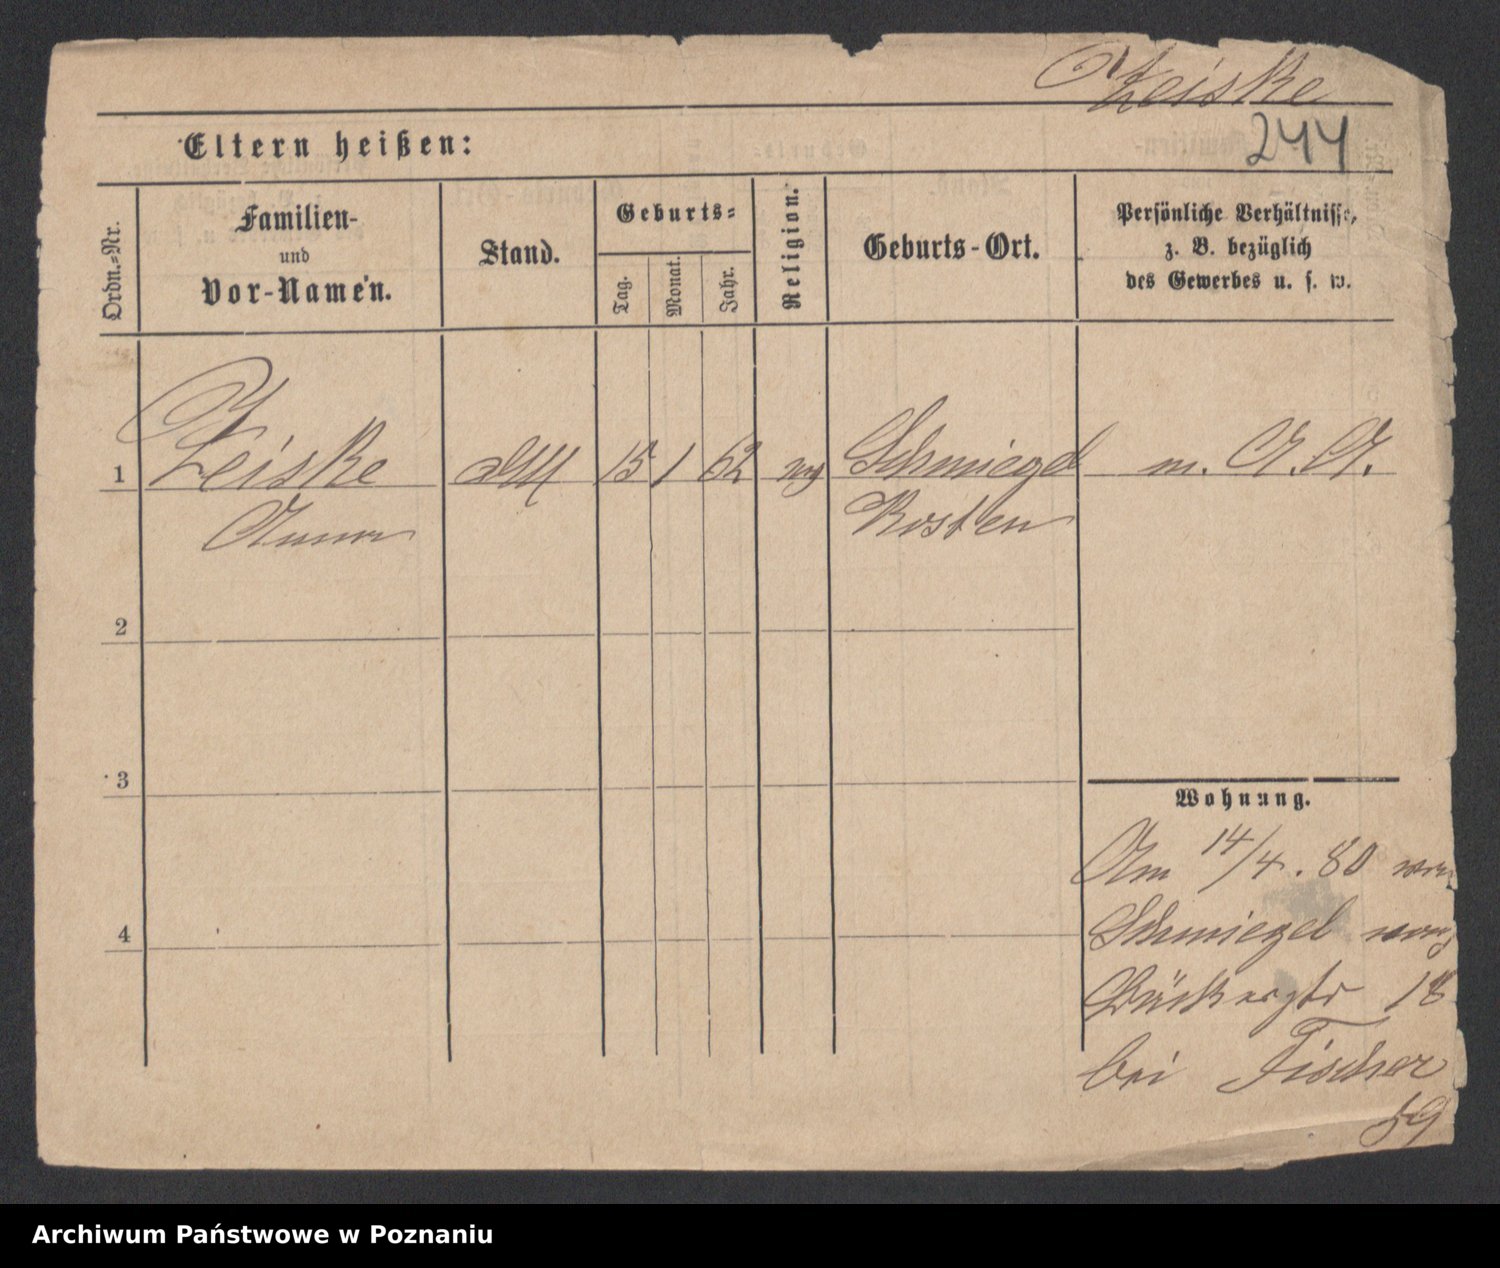 Zeiske
244
Eltern heißen:
Ordn.=Nr.
Familien-
und
Vor-Namen.
Stand.
Geburts=
Tag.
Monat.
Jahr.
Religion.
Geburts-Ort.
Persönliche Verhältnisse,
z. B. bezüglich
des Gewerbes u. s. w.
1 Zeiske 15 1 62 Schmiegel m. A. A.
Anna Kosten
2
3
4
Wohnung.
Am 14/4. 80 von
Schmiegel
18
bei Fischer
59
Archiwum Państwowe w Poznaniu